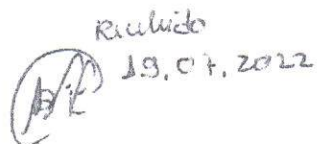 Recibido
19.07.2022